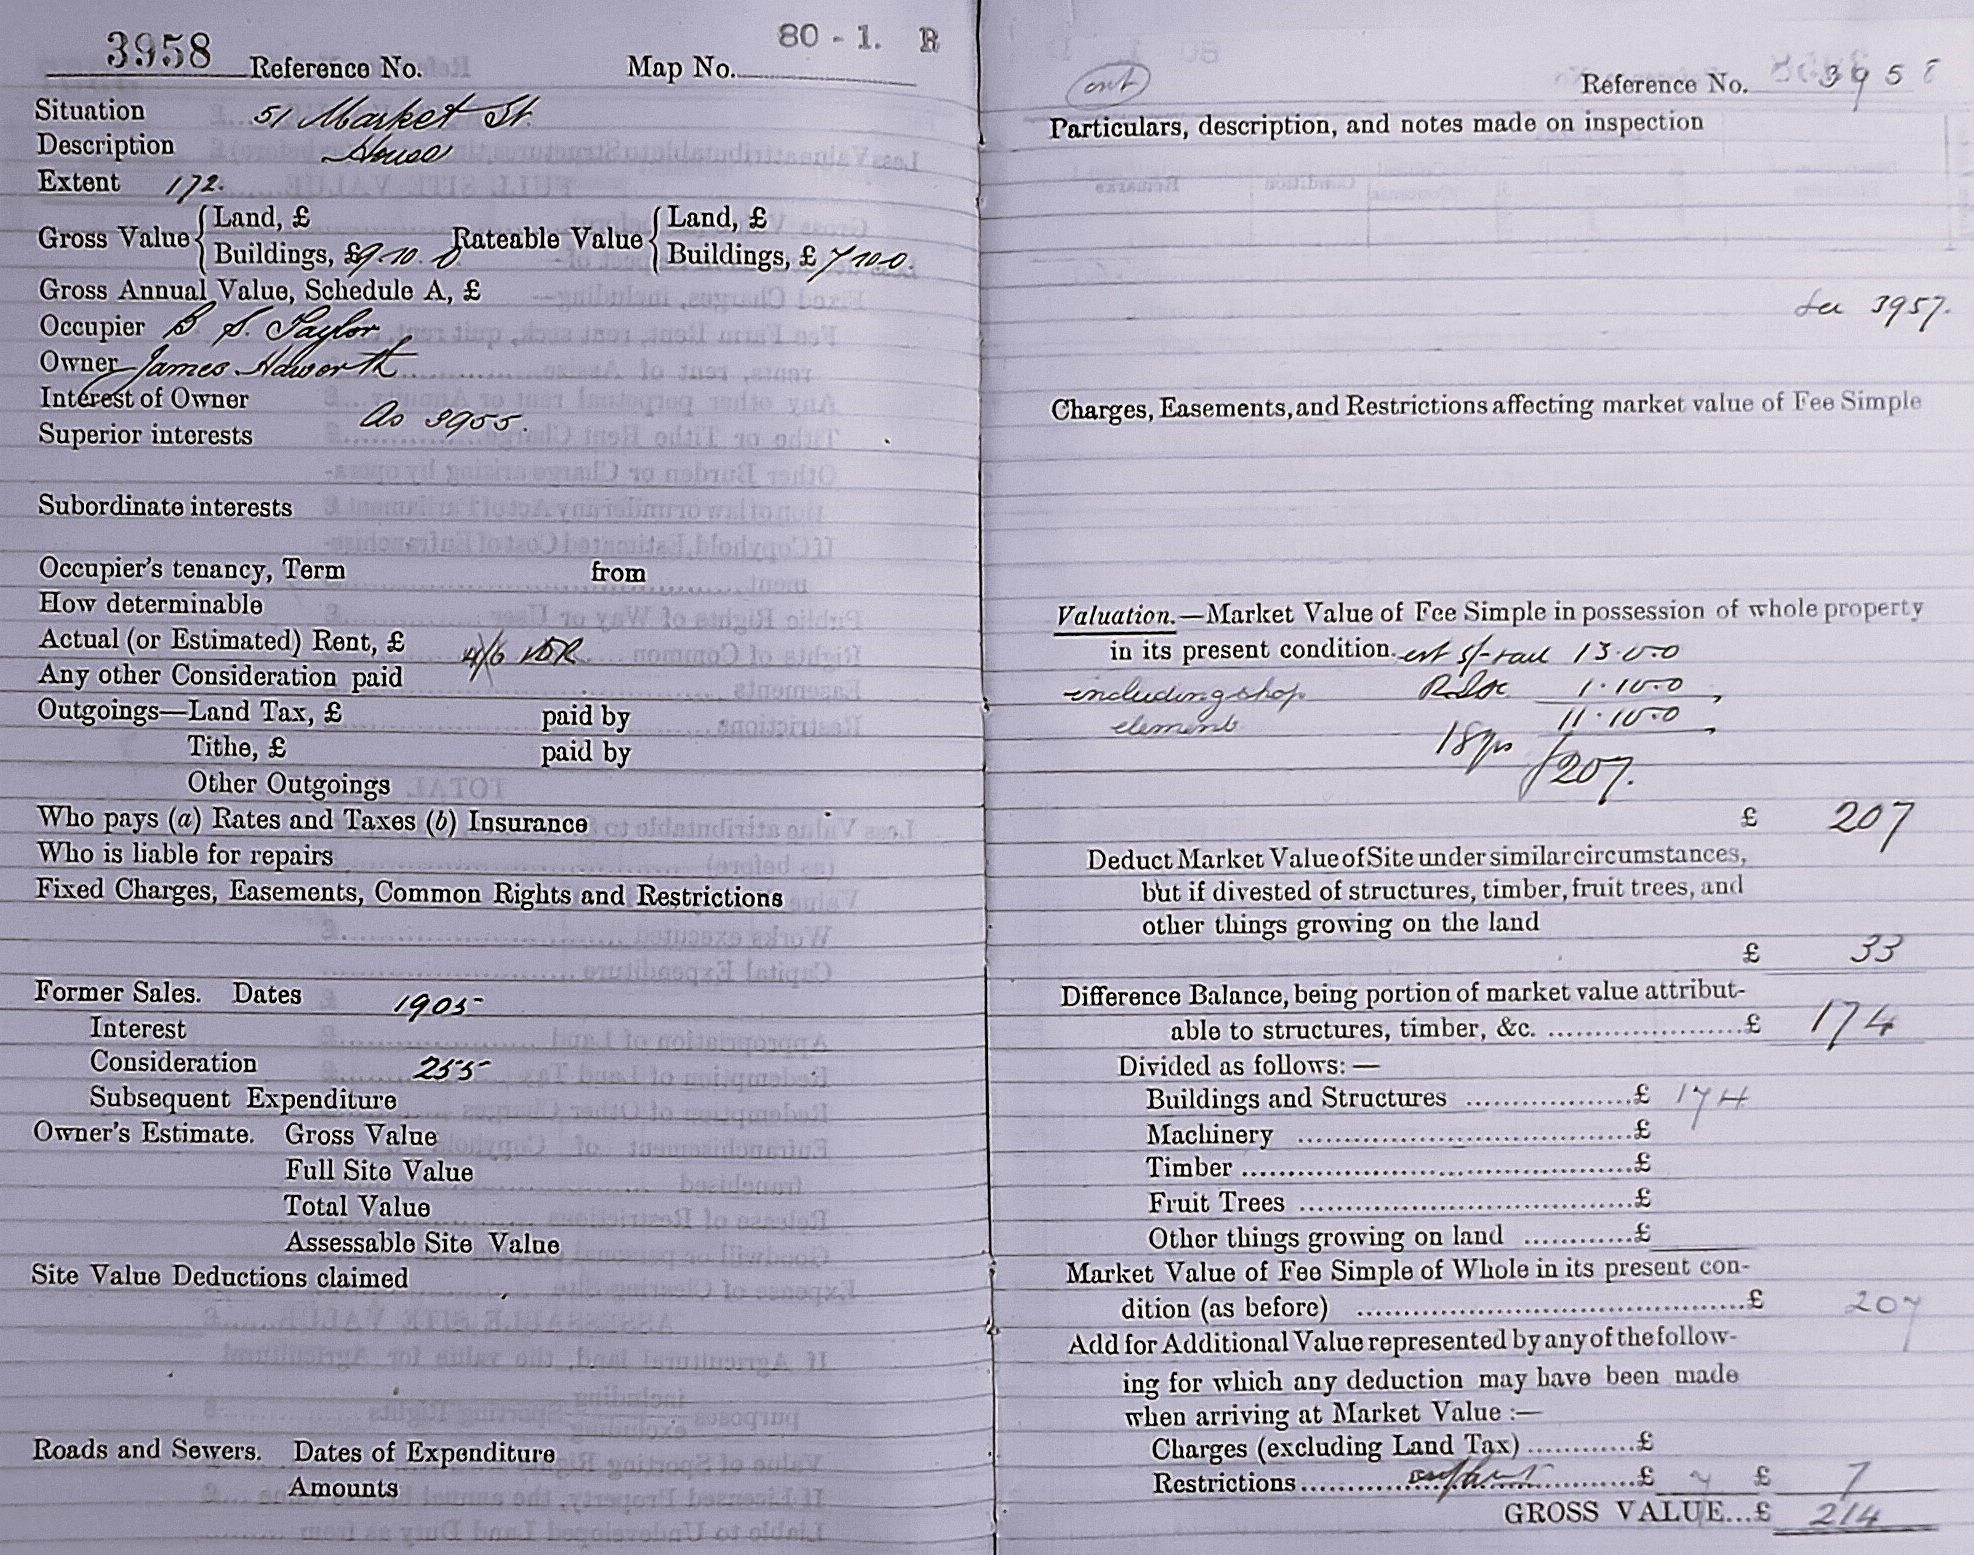 3958 Reference No. Map No. 80 - 1. B
Situation 51 Market St.
Description House
Extent 172.
Gross Value { Land, £ Rateable Value { Land, £
Buildings, £ 9.10.0 Buildings, £ 7 10 0.
Gross Annual Value, Schedule A, £
Occupier B S. Taylor
Owner James Haworth
Interest of Owner As 3955.
Superior interests
Subordinate interests
Occupier's tenancy, Term from
How determinable
Actual (or Estimated) Rent, £ 4/6
Any other Consideration paid
Outgoings—Land Tax, £ paid by
Tithe, £ paid by
Other Outgoings
Who pays (a) Rates and Taxes (b) Insurance
Who is liable for repairs
Fixed Charges, Easements, Common Rights and Restrictions
Former Sales. Dates 1905
Interest
Consideration 255
Subsequent Expenditure
Owner's Estimate. Gross Value
Full Site Value
Total Value
Assessable Site Value
Site Value Deductions claimed
Roads and Sewers. Dates of Expenditure
Amounts
Reference No. 3958
Particulars, description, and notes made on inspection
See 3957.
Charges, Easements, and Restrictions affecting market value of Fee Simple
Valuation.—Market Value of Fee Simple in possession of whole property
in its present condition. 13.0.0
including shop 1.10.0
element. 11.10.0
18 yrs £207.
£ 207
Deduct Market Value of Site under similar circumstances,
but if divested of structures, timber, fruit trees, and
other things growing on the land
£ 33
Difference Balance, being portion of market value attribut-
able to structures, timber, &c. £ 174
Divided as follows:—
Buildings and Structures £ 174
Machinery £
Timber £
Fruit Trees £
Other things growing on land £
Market Value of Fee Simple of Whole in its present con-
dition (as before) £ 207
Add for Additional Value represented by any of the follow-
ing for which any deduction may have been made
when arriving at Market Value :—
Charges (excluding Land Tax) £
Restrictions £ 7 £ 7
GROSS VALUE...£ 214